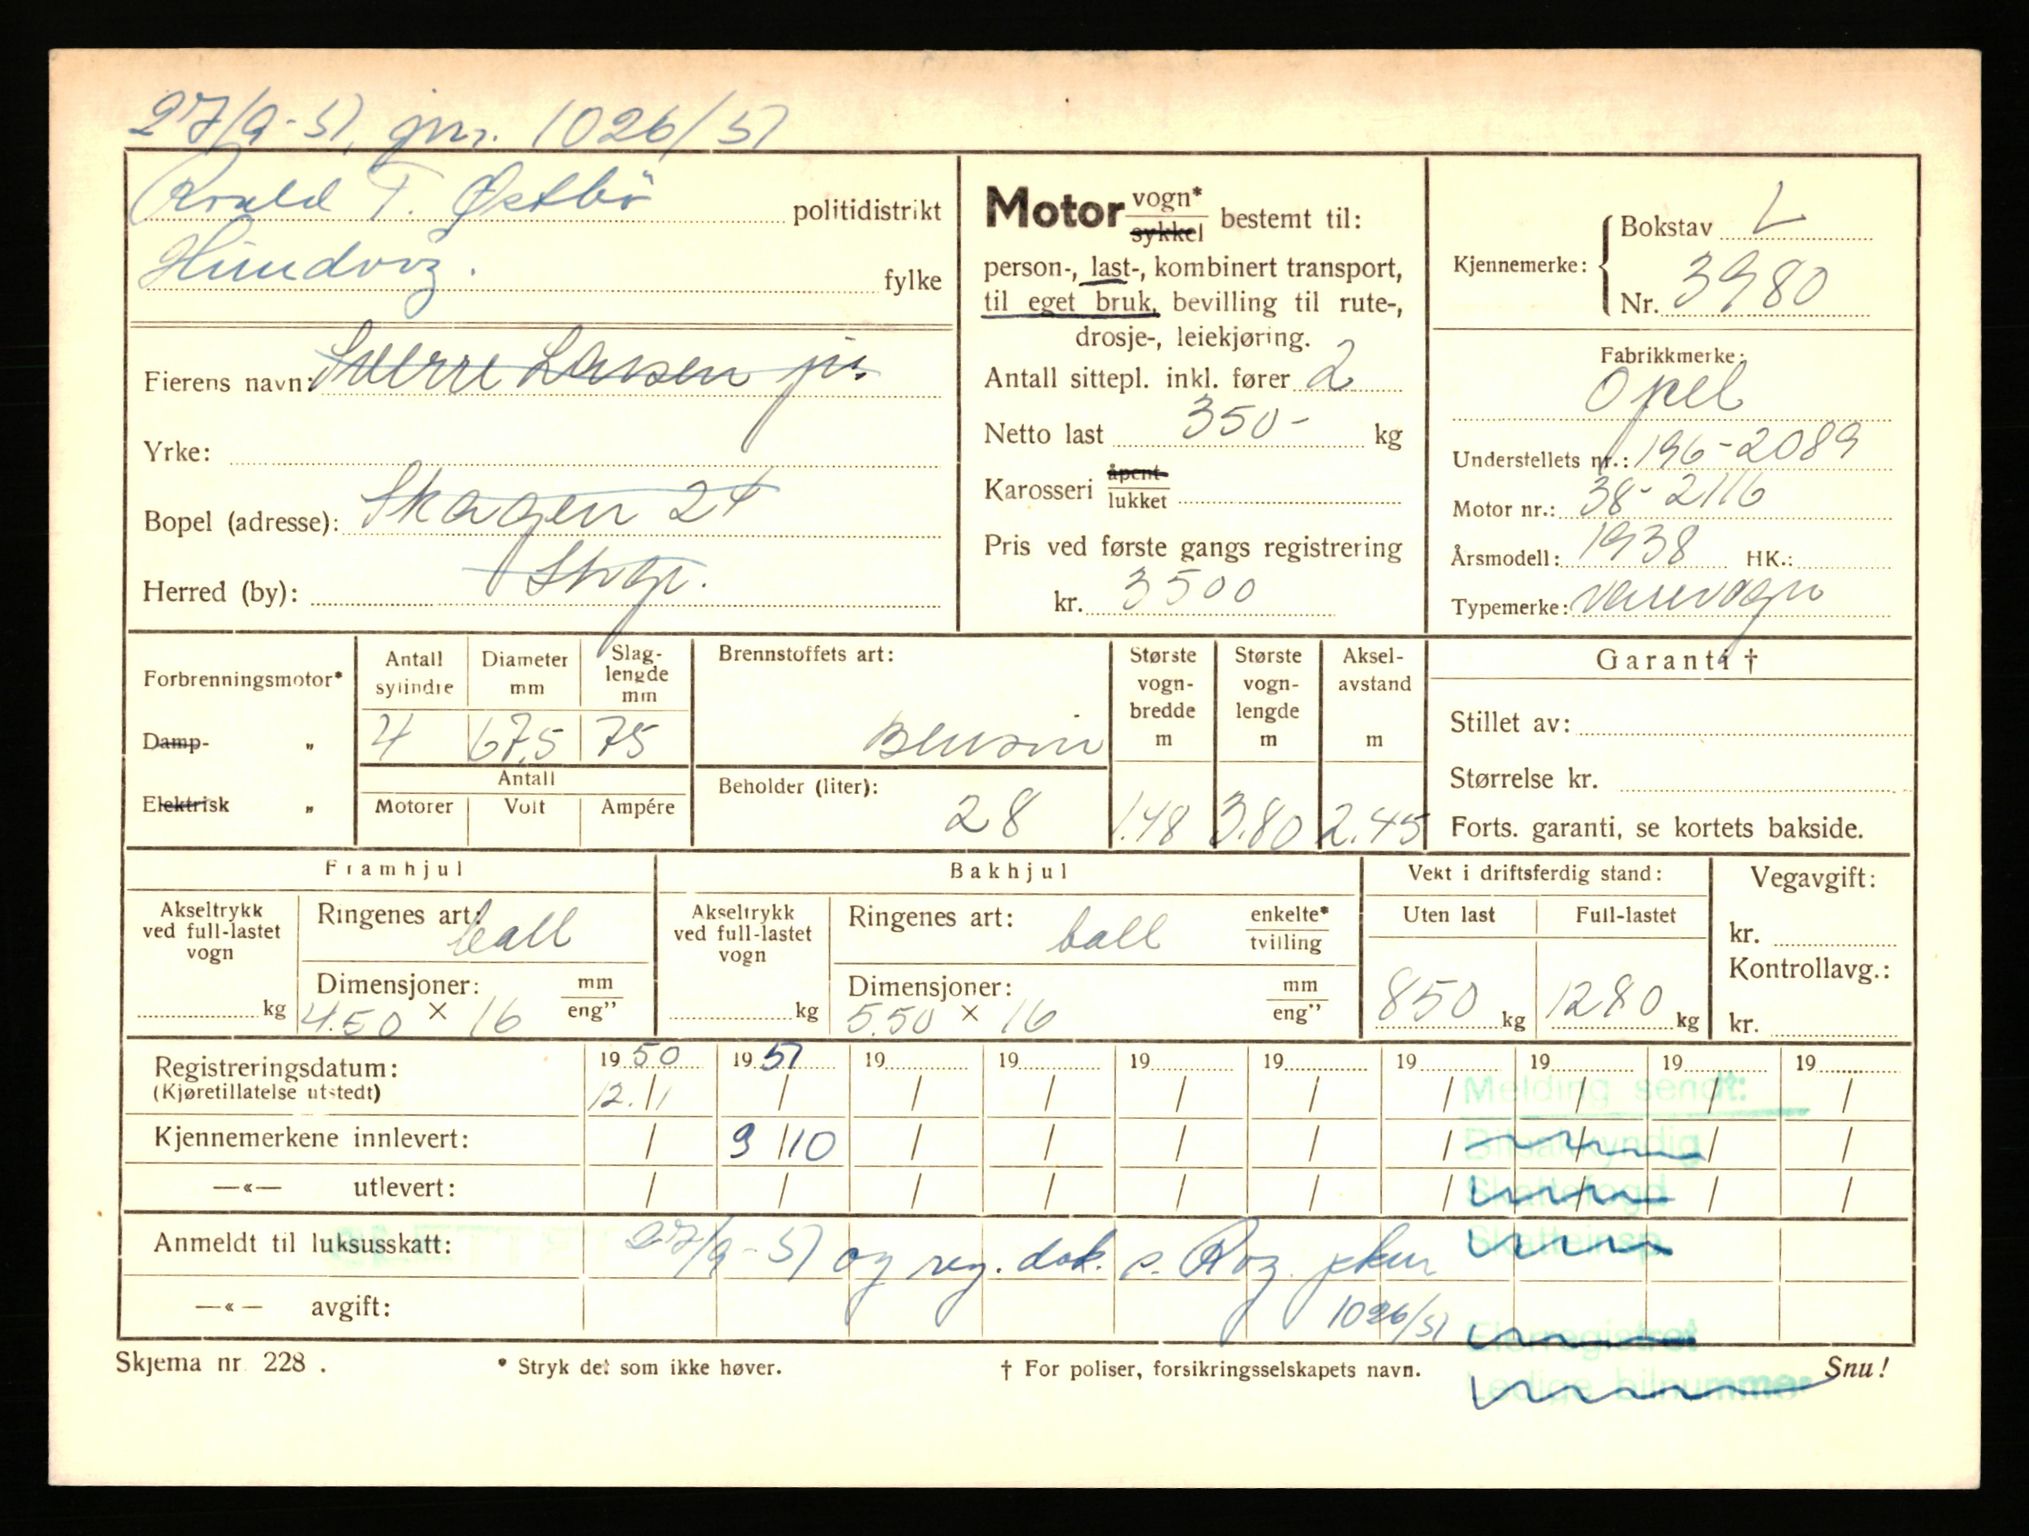 27/9-51, jnr. 1026/51
Roald T. Østbö politidistrikt
Hundvåg. fylke
Eierens navn: Sverre Larsen jr.
Yrke:
Bopel (adresse): Skagen 24
Herred (by): Stvgr.
Motor vogn* sykkel bestemt til:
person-, last-, kombinert transport,
til eget bruk, bevilling til rute-,
drosje-, leiekjøring.
Antall sittepl. inkl. fører 2
Netto last 350- kg
Karosseri åpent lukket
Pris ved første gangs registrering
kr. 3500
Kjennemerke: Bokstav L
Nr. 3980
Fabrikkmerke:
Opel
Understellets nr.: 196-2089
Motor nr.: 38-2116
Årsmodell: 1938 HK.:
Typemerke: varevogn
Forbrenningsmotor*
Damp- „
Elektrisk „
Antall sylindre Diameter mm Slag-lengde mm
4 67,5 75
Antall
Motorer Volt Ampére
Brennstoffets art:
Bensin
Beholder (liter):
28
Største vogn-bredde m Største vogn-lengde m Aksel-avstand m
1.48 3.80 2.45
Garanti †
Stillet av:
Størrelse kr.
Forts. garanti, se kortets bakside.
Framhjul
Akseltrykk ved full-lastet vogn
kg
Ringenes art: ball
Dimensjoner: mm eng”
4.50 × 16
Bakhjul
Akseltrykk ved full-lastet vogn
kg
Ringenes art: ball enkelte* tvilling
Dimensjoner: mm eng”
5.50 × 16
Vekt i driftsferdig stand:
Uten last Full-lastet
850 kg 1280 kg
Vegavgift:
kr.
Kontrollavg.:
kr.
Registreringsdatum: 19 50 19 51 19 19 19 19 19 19 19 19
(Kjøretillatelse utstedt) 12. 11 / / / / / / / / /
Kjennemerkene innlevert: / 9 / 10 / / / / / / / /
—«— utlevert: / / / / / / / / / /
Anmeldt til luksusskatt: 27/9-51 og reg. dok. s. Rog.
—«— avgift: 1026/51
Melding sendt:
Bilsakkyndig
Skattefogd
Skatteinsp.
Eierregistret
Ledige bilnummer
Skjema nr. 228.
* Stryk det som ikke høver.
† For poliser, forsikringsselskapets navn.
Snu!